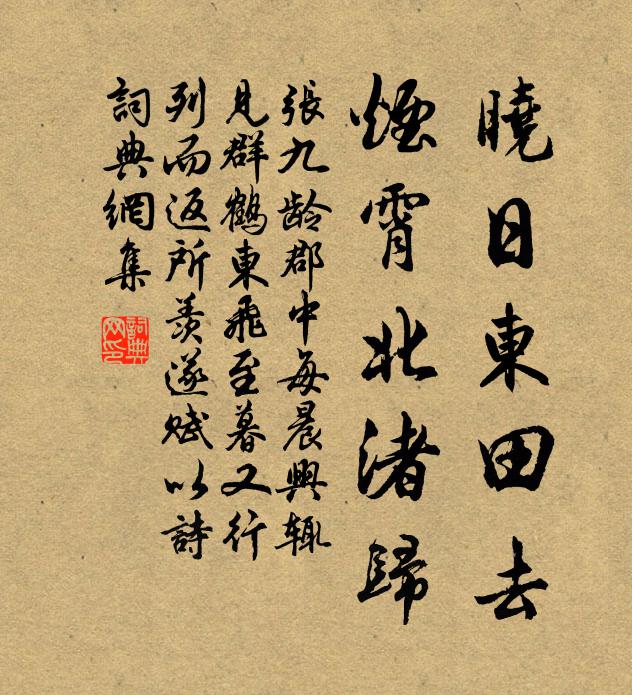 曉日東田去
煙霄北渚歸
張九龄郡中每晨興辄
見群鶴東飛至暮又行
列而返所羨遂赋以詩
詞典網集
詞典
网印